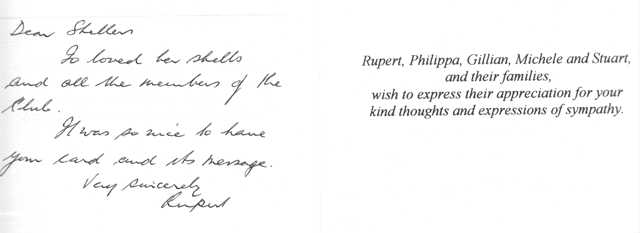 Dear Shellers
Jo loved her shells
and all the members of the
Club.
It was so nice to have
your card and its message.
Very sincerely
Rupert
Rupert, Philippa, Gillian, Michele and Stuart,
and their families,
wish to express their appreciation for your
kind thoughts and expressions of sympathy.